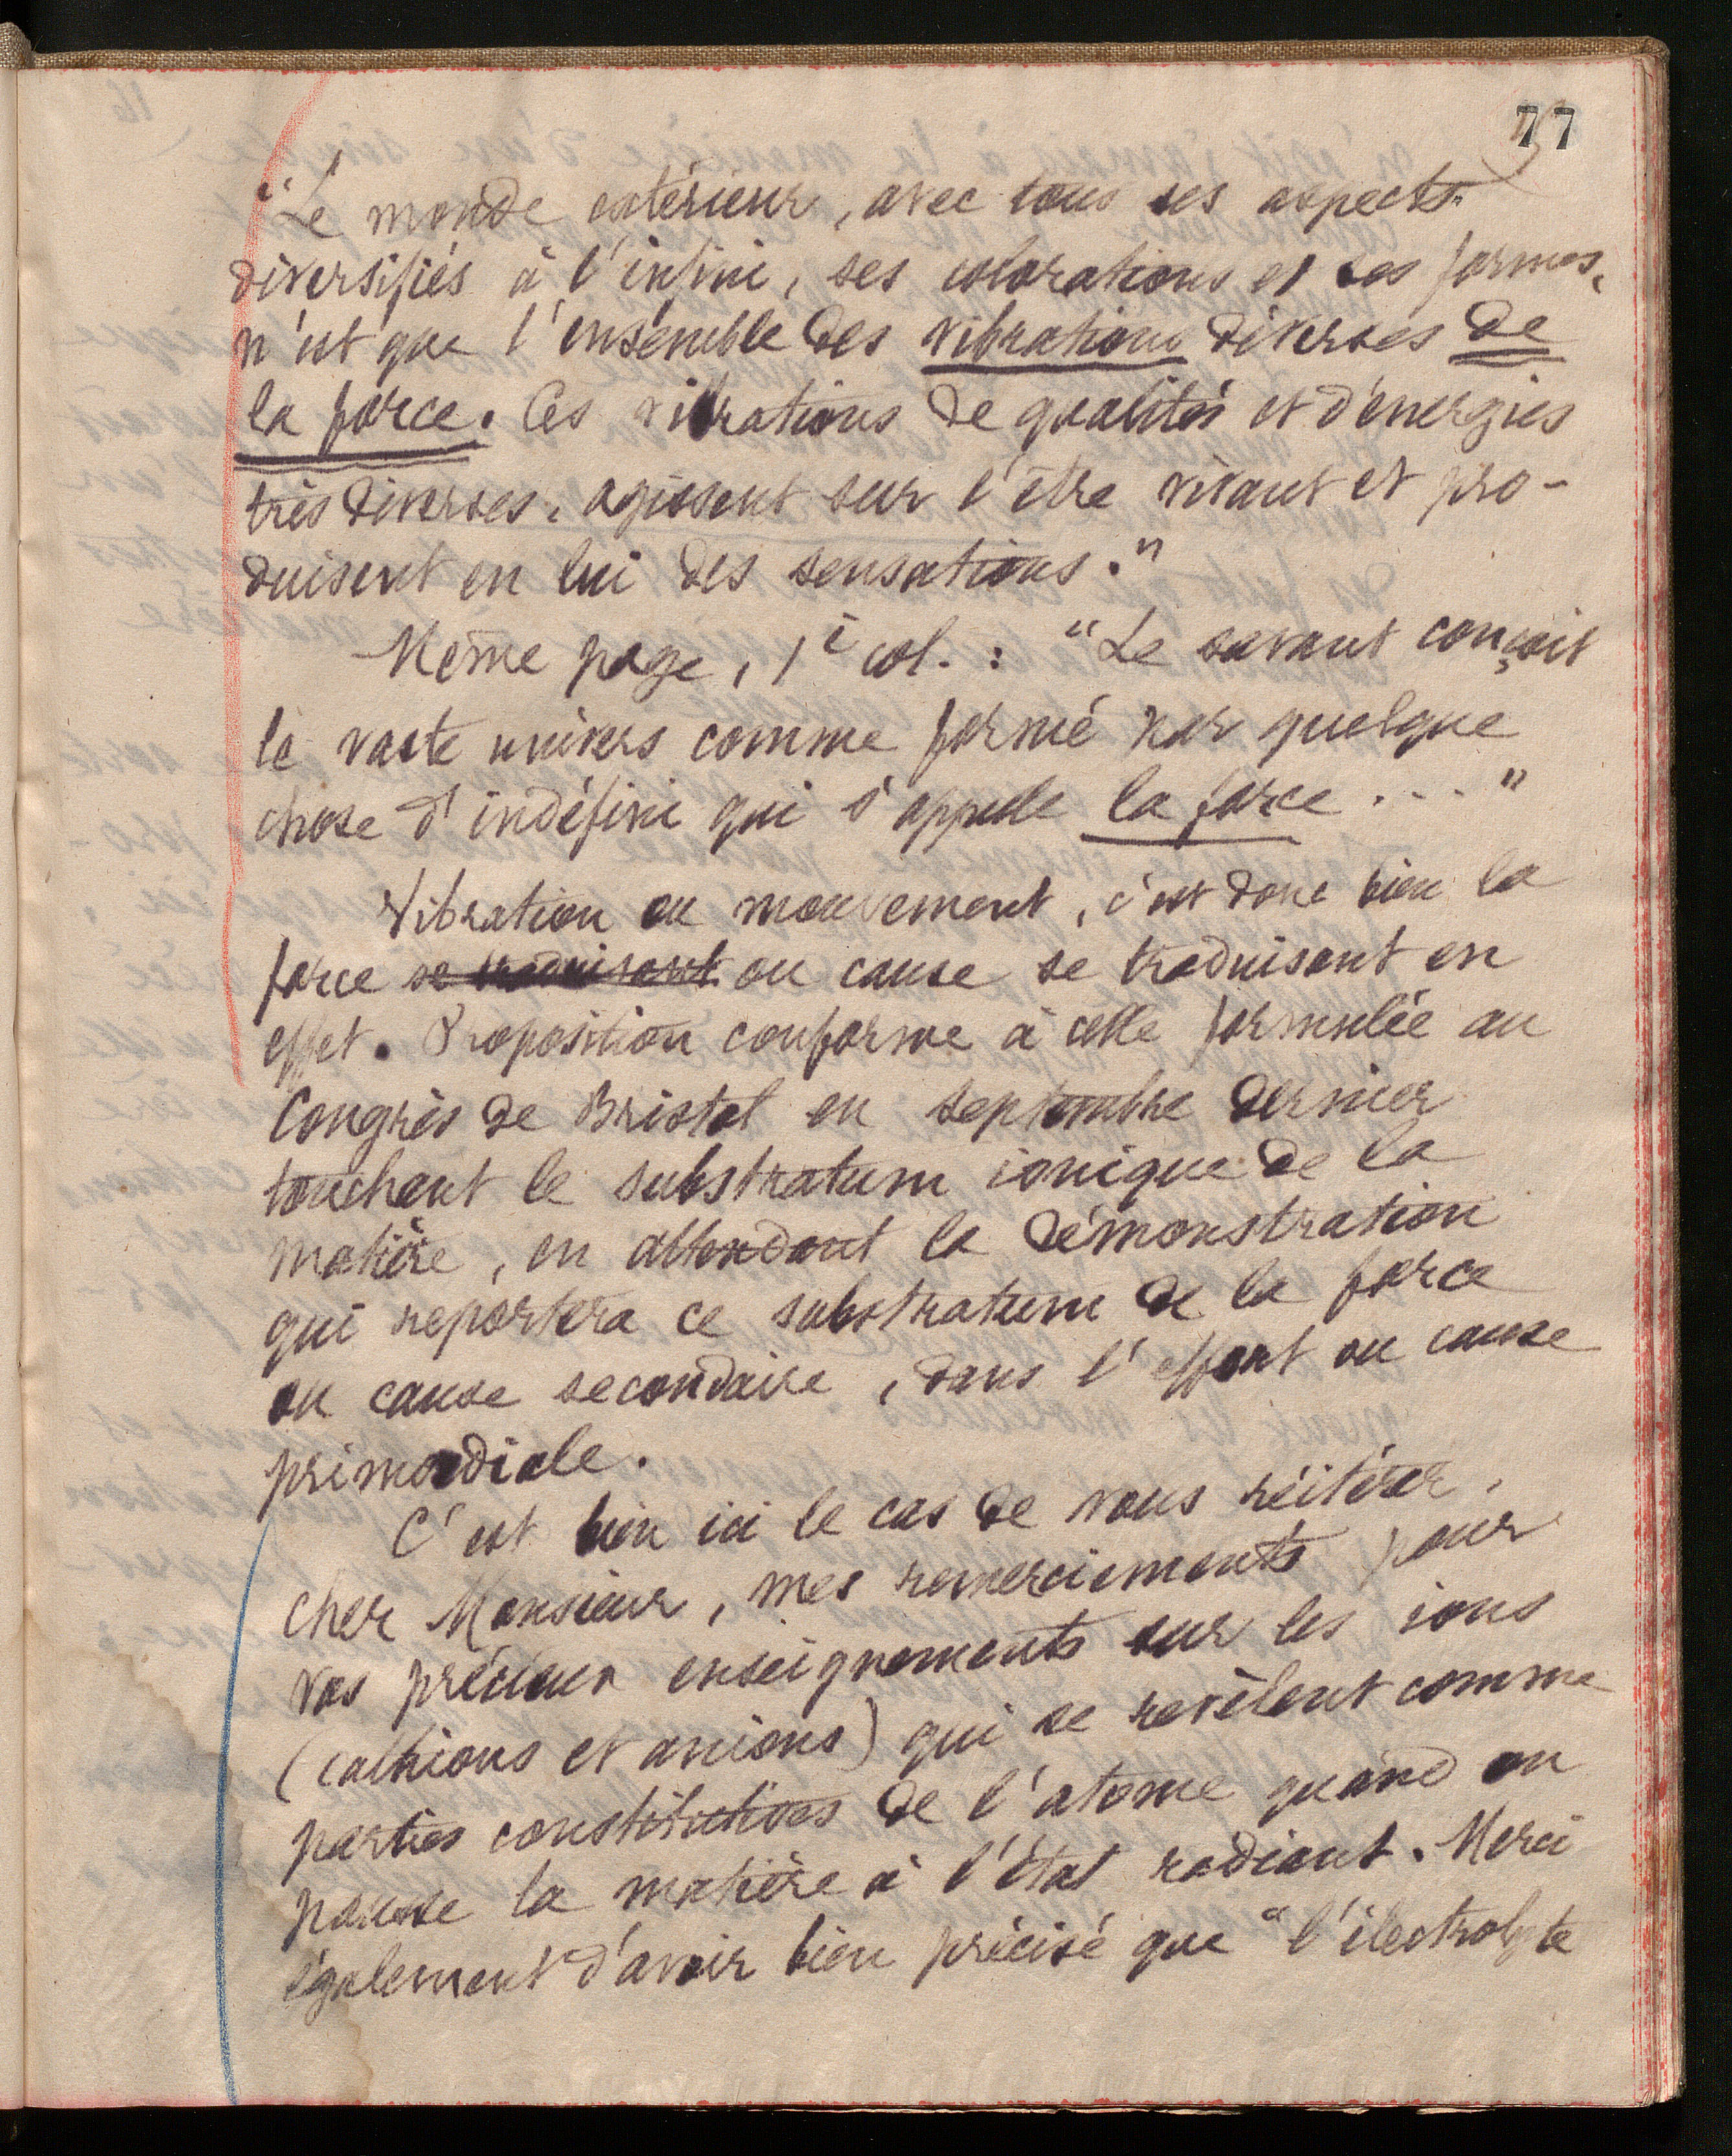 77
"Le monde extérieur, avec tous ses aspects
diversifiés à l'infini, ses colorations et ses formes,
n'est que l'ensemble des vibrations diverses de
la force. Ces vibrations de qualités et d'énergies
très diverses, agissent sur l'être vivant et pro-
duisent en lui des sensations."
Même page, 1e col. : "Le savant conçoit
le vaste univers comme formé par quelque
chose d'indéfini qui s'appelle la force . . . "
Vibration ou mouvement, c'est donc bien la
force se traduisant ou cause se traduisant en
effet. Proposition conforme à celle formulée au
Congrès de Bristol en septembre dernier
touchant le substratum ionique de la
matière, en attendant la démonstration
qui reportera ce substratum de la force
ou cause secondaire, dans l'effort ou cause
primordiale.
C'est bien ici le cas de vous réitérer,
cher Monsieur, mes remerciements pour
vos précieux enseignements sur les ions
(cathions et anions) qui se revèlent comme
parties constitutives de l'atome quand on
pousse la matière à l'état radiant. Merci
également d'avoir bien précisé que "l'électrolyte